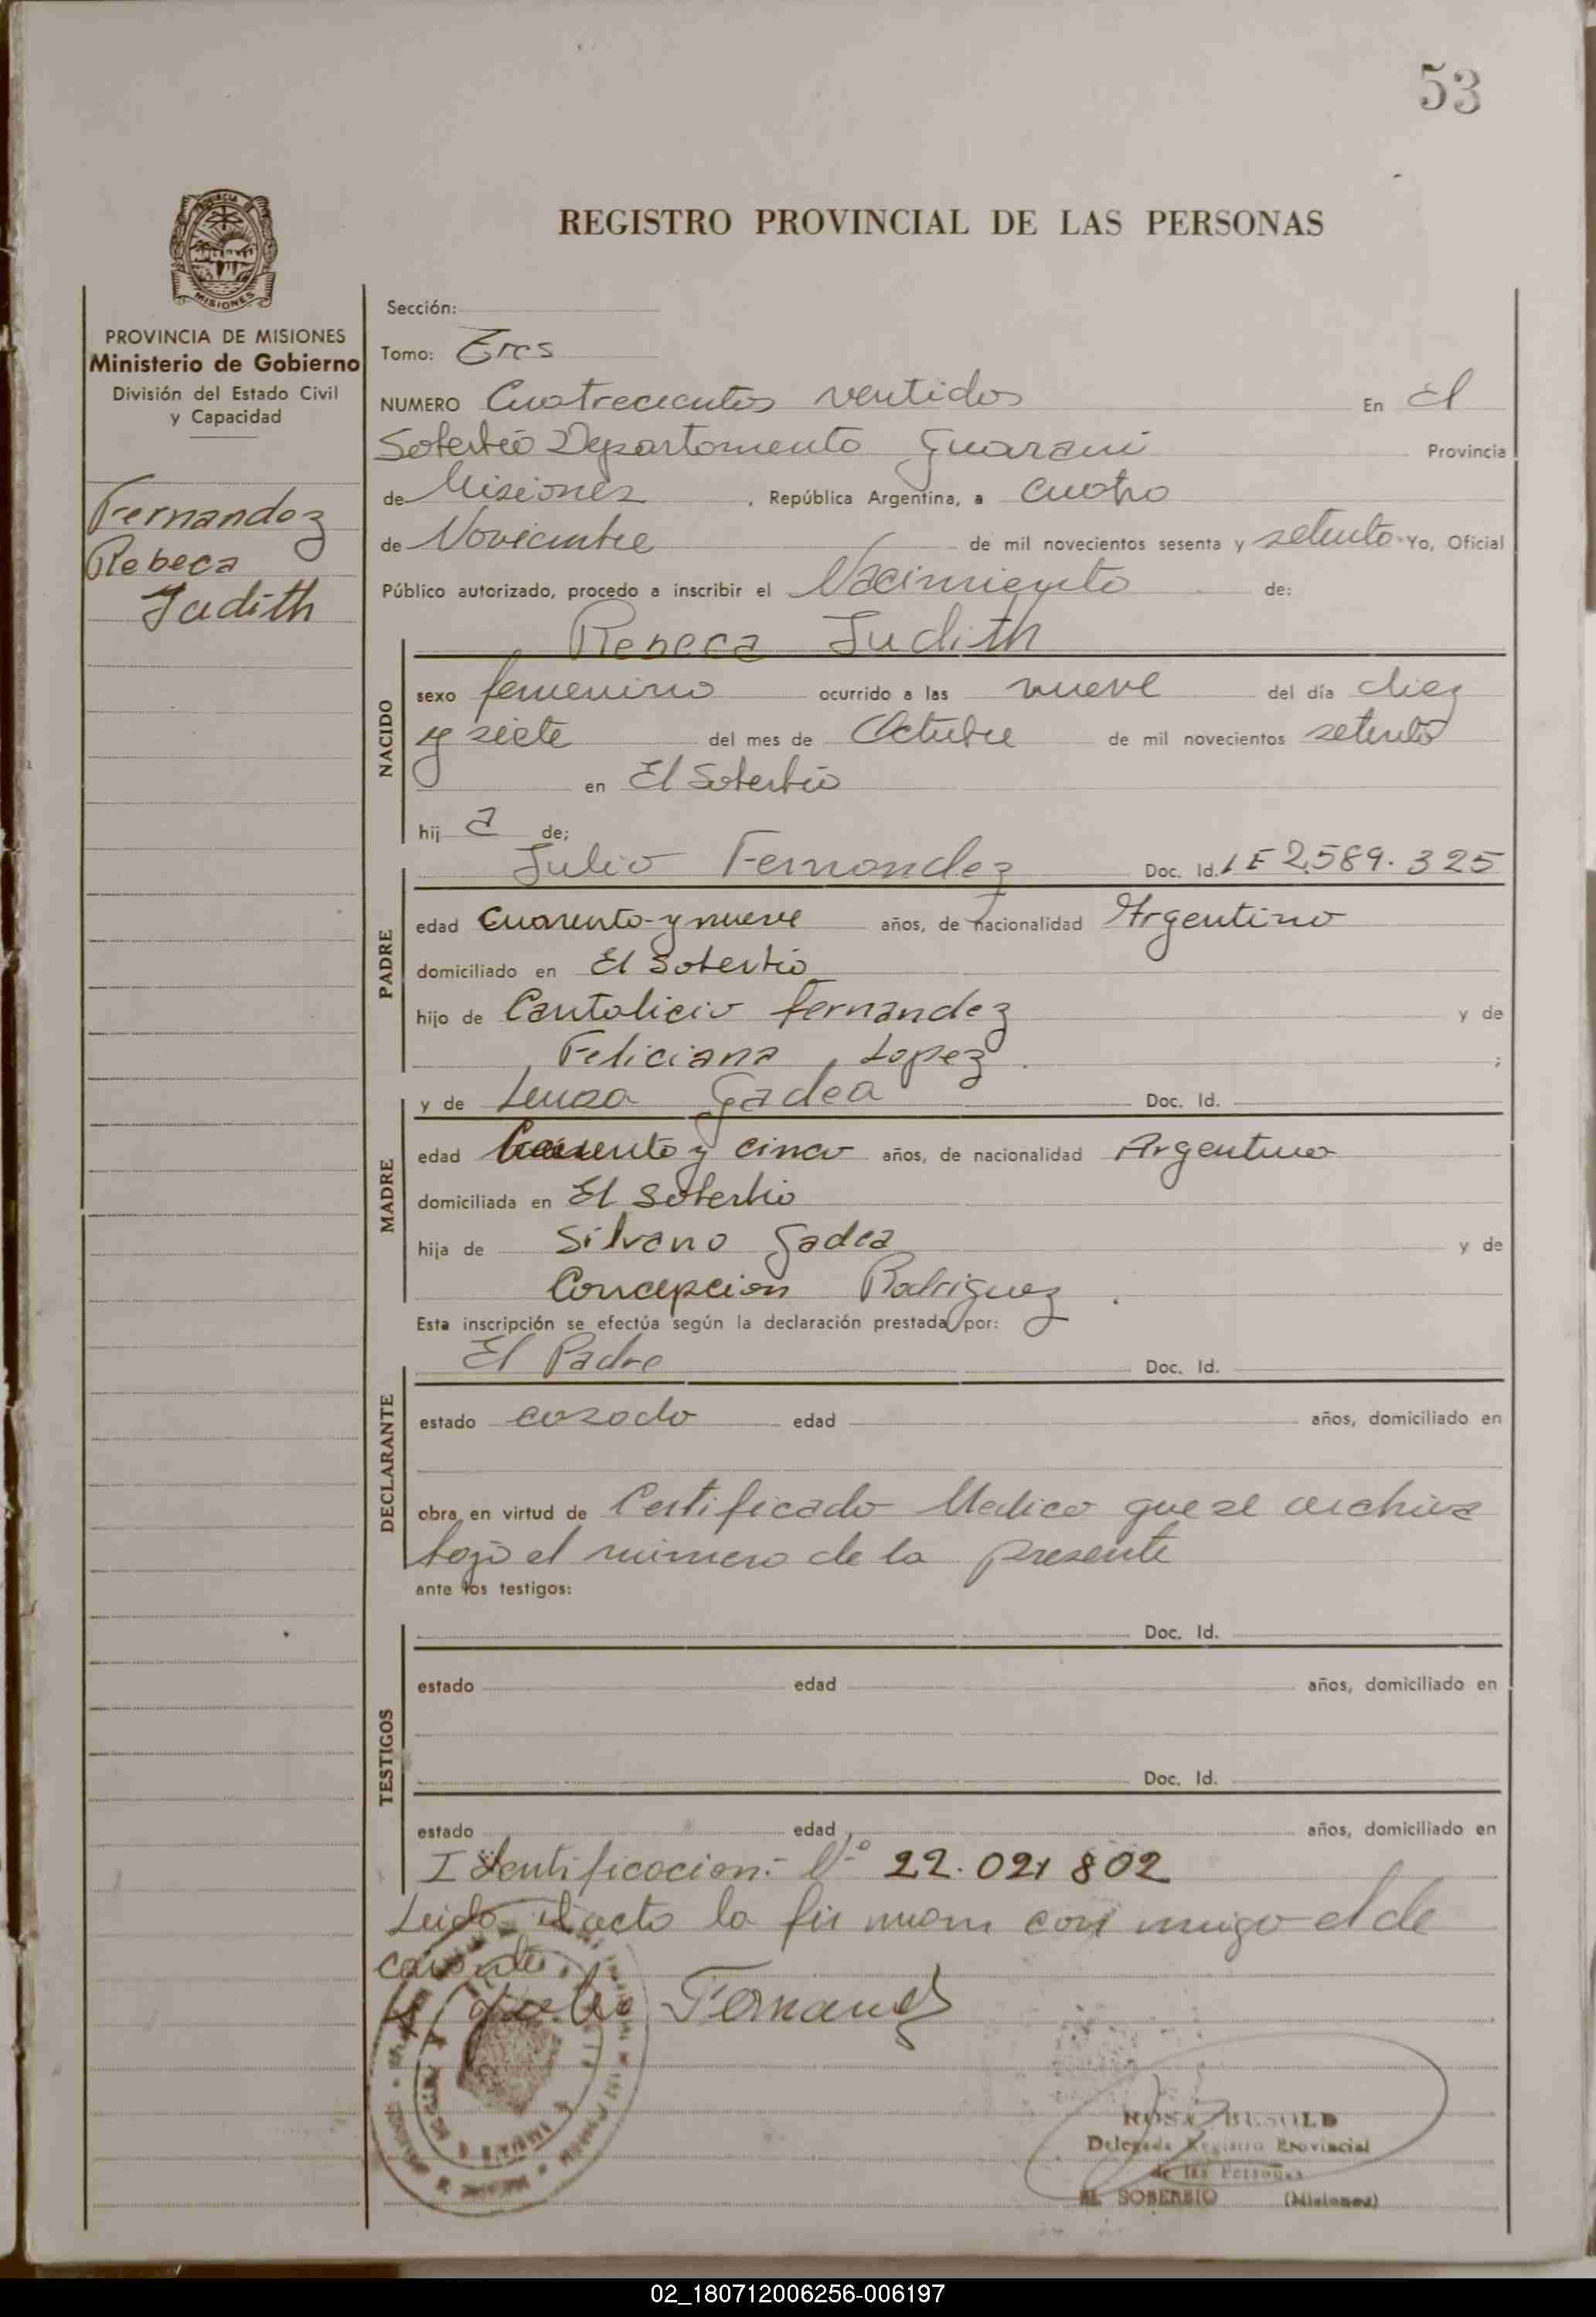 53
REGISTRO PROVINCIAL DE LAS PERSONAS
PROVINCIA DE MISIONES
Ministerio de Gobierno
División del Estado Civil
y Capacidad
Fernandez
Rebeca
Judith
Sección:
Tomo: Tres
NUMERO Cuatrecientos ventidos En El
Soberbio Departamento Guarani Provincia
de Misiones, República Argentina, a cuatro
de Noviembre de mil novecientos sesenta y setenta Yo, Oficial
Público autorizado, procedo a inscribir el Nacimiento de:
Rebeca Judith
NACIDO
sexo femenino ocurrido a las nueve del día diez
y siete del mes de Octubre de mil novecientos setenta
en El Soberbio
hij a de;
Julio Fernandez Doc. Id. LE 2,589.325
PADRE
edad Cuarenta y nueve años, de nacionalidad Argentino
domiciliado en El Soberbio
hijo de Cantalicio Fernandez y de
Feliciana Lopez ;
y de Gadea Doc. Id.
MADRE
edad y cinco años, de nacionalidad Argentina
domiciliada en El Soberbio
hija de Silvano Gadea y de
Concepcion Rodriguez.
Esta inscripción se efectúa según la declaración prestada por:
El Padre Doc. Id.
DECLARANTE
estado casado edad años, domiciliado en
obra en virtud de Certificado Medico que se archiva
bajo el número de la presente
ante los testigos:
Doc. Id.
TESTIGOS
estado edad años, domiciliado en
Doc. Id.
estado edad años, domiciliado en
Identificacion:- Nº 22.021 802
Leido el acto la firmam con migo el de
clarante.
Julio Fernandez
ROSA BESOLD
Delegada Registro Provincial
de las Personas
EL SOBERBIO (Misiones)
02_180712006256-006197